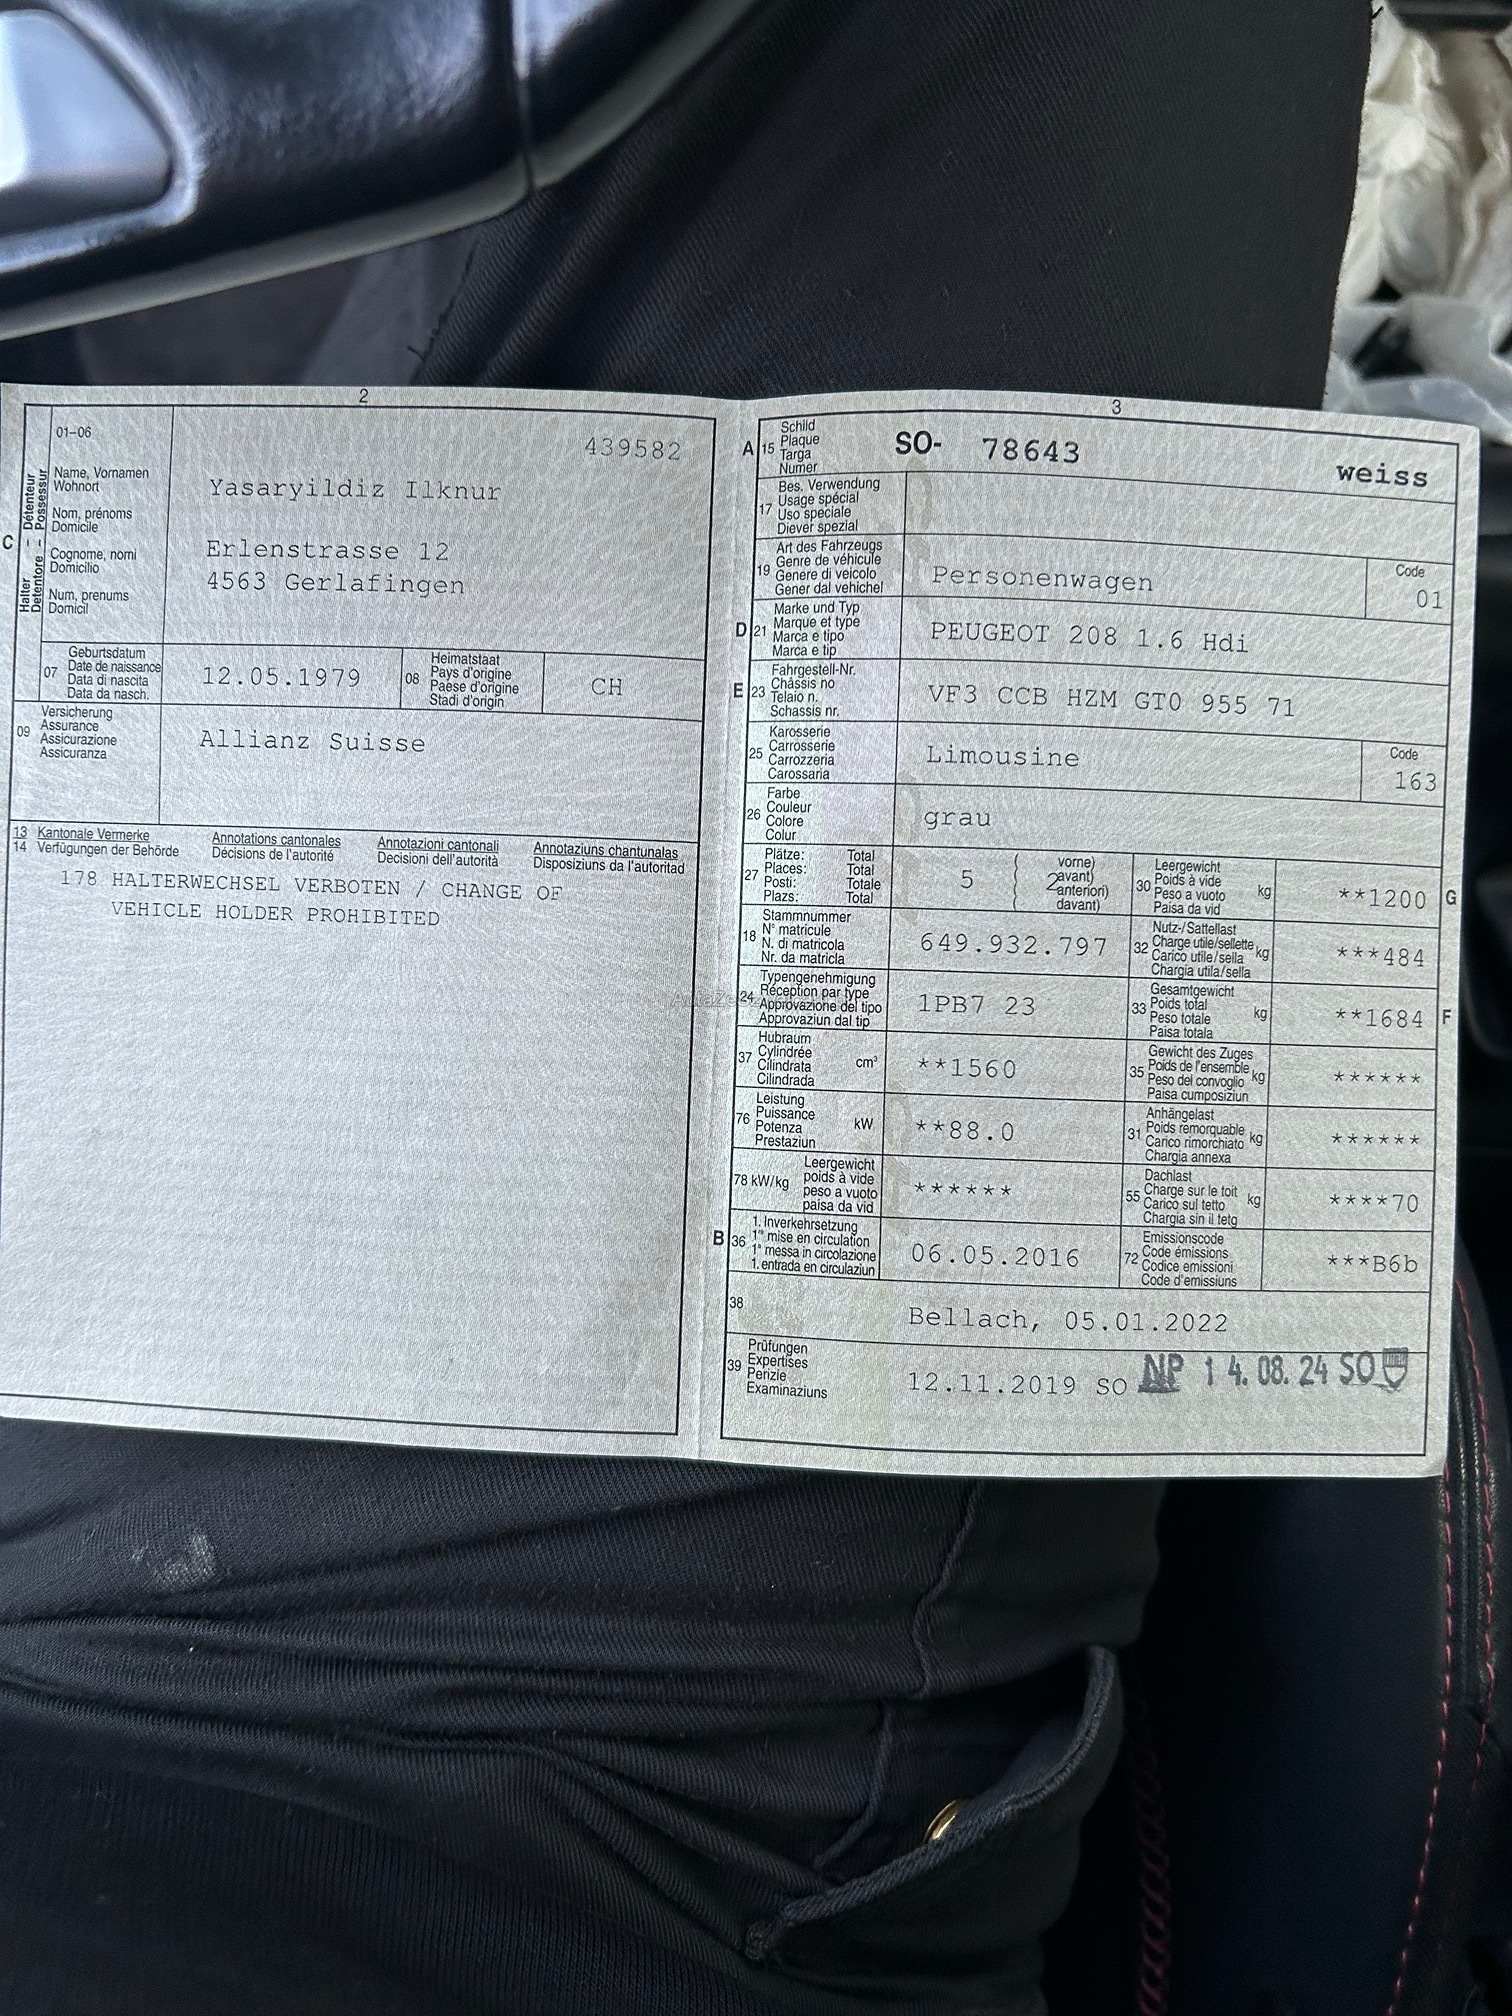 2
01-06
439582
C
Halter – Détenteur
Detentore – Possessur
Name, Vornamen
Wohnort
Nom, prénoms
Domicile
Cognome, nomi
Domicilio
Num, prenums
Domicil
Yasaryildiz Ilknur
Erlenstrasse 12
4563 Gerlafingen
07
Geburtsdatum
Date de naissance
Data di nascita
Data da nasch.
12.05.1979
08
Heimatstaat
Pays d'origine
Paese d'origine
Stadi d'origin
CH
09
Versicherung
Assurance
Assicurazione
Assicuranza
Allianz Suisse
13 Kantonale Vermerke Annotations cantonales Annotazioni cantonali Annotaziuns chantunalas
14 Verfügungen der Behörde Décisions de l'autorité Decisioni dell'autorità Disposiziuns da l'autoritad
178 HALTERWECHSEL VERBOTEN / CHANGE OF
VEHICLE HOLDER PROHIBITED
3
A 15
Schild
Plaque
Targa
Numer
SO- 78643
weiss
17
Bes. Verwendung
Usage spécial
Uso speciale
Diever spezial
19
Art des Fahrzeugs
Genre de véhicule
Genere di veicolo
Gener dal vehichel
Personenwagen
Code
01
D 21
Marke und Typ
Marque et type
Marca e tipo
Marca e tip
PEUGEOT 208 1.6 Hdi
E 23
Fahrgestell-Nr.
Châssis no
Telaio n.
Schassis nr.
VF3 CCB HZM GT0 955 71
25
Karosserie
Carrosserie
Carrozzeria
Carossaria
Limousine
Code
163
26
Farbe
Couleur
Colore
Colur
grau
27
Plätze: Total
Places: Total
Posti: Totale
Plazs: Total
5
2
vorne)
avant)
anteriori)
davant)
30
Leergewicht
Poids à vide
Peso a vuoto
Paisa da vid
kg
**1200
G
18
Stammnummer
N° matricule
N. di matricola
Nr. da matricla
649.932.797
32
Nutz-/Sattellast
Charge utile/sellette
Carico utile/sella
Chargia utila/sella
kg
***484
24
Typengenehmigung
Réception par type
Approvazione del tipo
Approvaziun dal tip
1PB7 23
33
Gesamtgewicht
Poids total
Peso totale
Paisa totala
kg
**1684
F
37
Hubraum
Cylindrée
Cilindrata
Cilindrada
cm³
**1560
35
Gewicht des Zuges
Poids de l'ensemble
Peso del convoglio
Paisa cumposiziun
kg
******
76
Leistung
Puissance
Potenza
Prestaziun
kW
**88.0
31
Anhängelast
Poids remorquable
Carico rimorchiato
Chargia annexa
kg
******
78 kW/kg
Leergewicht
poids à vide
peso a vuoto
paisa da vid
******
55
Dachlast
Charge sur le toit
Carico sul tetto
Chargia sin il tetg
kg
****70
B 36
1. Inverkehrsetzung
1re mise en circulation
1a messa in circolazione
1. entrada en circulaziun
06.05.2016
72
Emissionscode
Code émissions
Codice emissioni
Code d'emissiuns
***B6b
38
Bellach, 05.01.2022
39
Prüfungen
Expertises
Perizie
Examinaziuns
12.11.2019 SO NP 14.08.24 SO